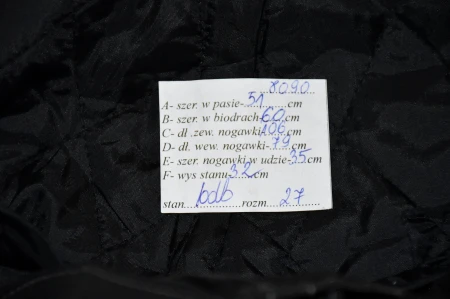 8090
A- szer. w pasie-51......cm
B- szer. w biodrach-60.cm
C- dł .zew. nogawki-106cm
D- dł. wew. nogawki-79cm
E- szer. nogawki w udzie-35cm
F- wys stanu-32cm
stan....bdb.......rozm...27......